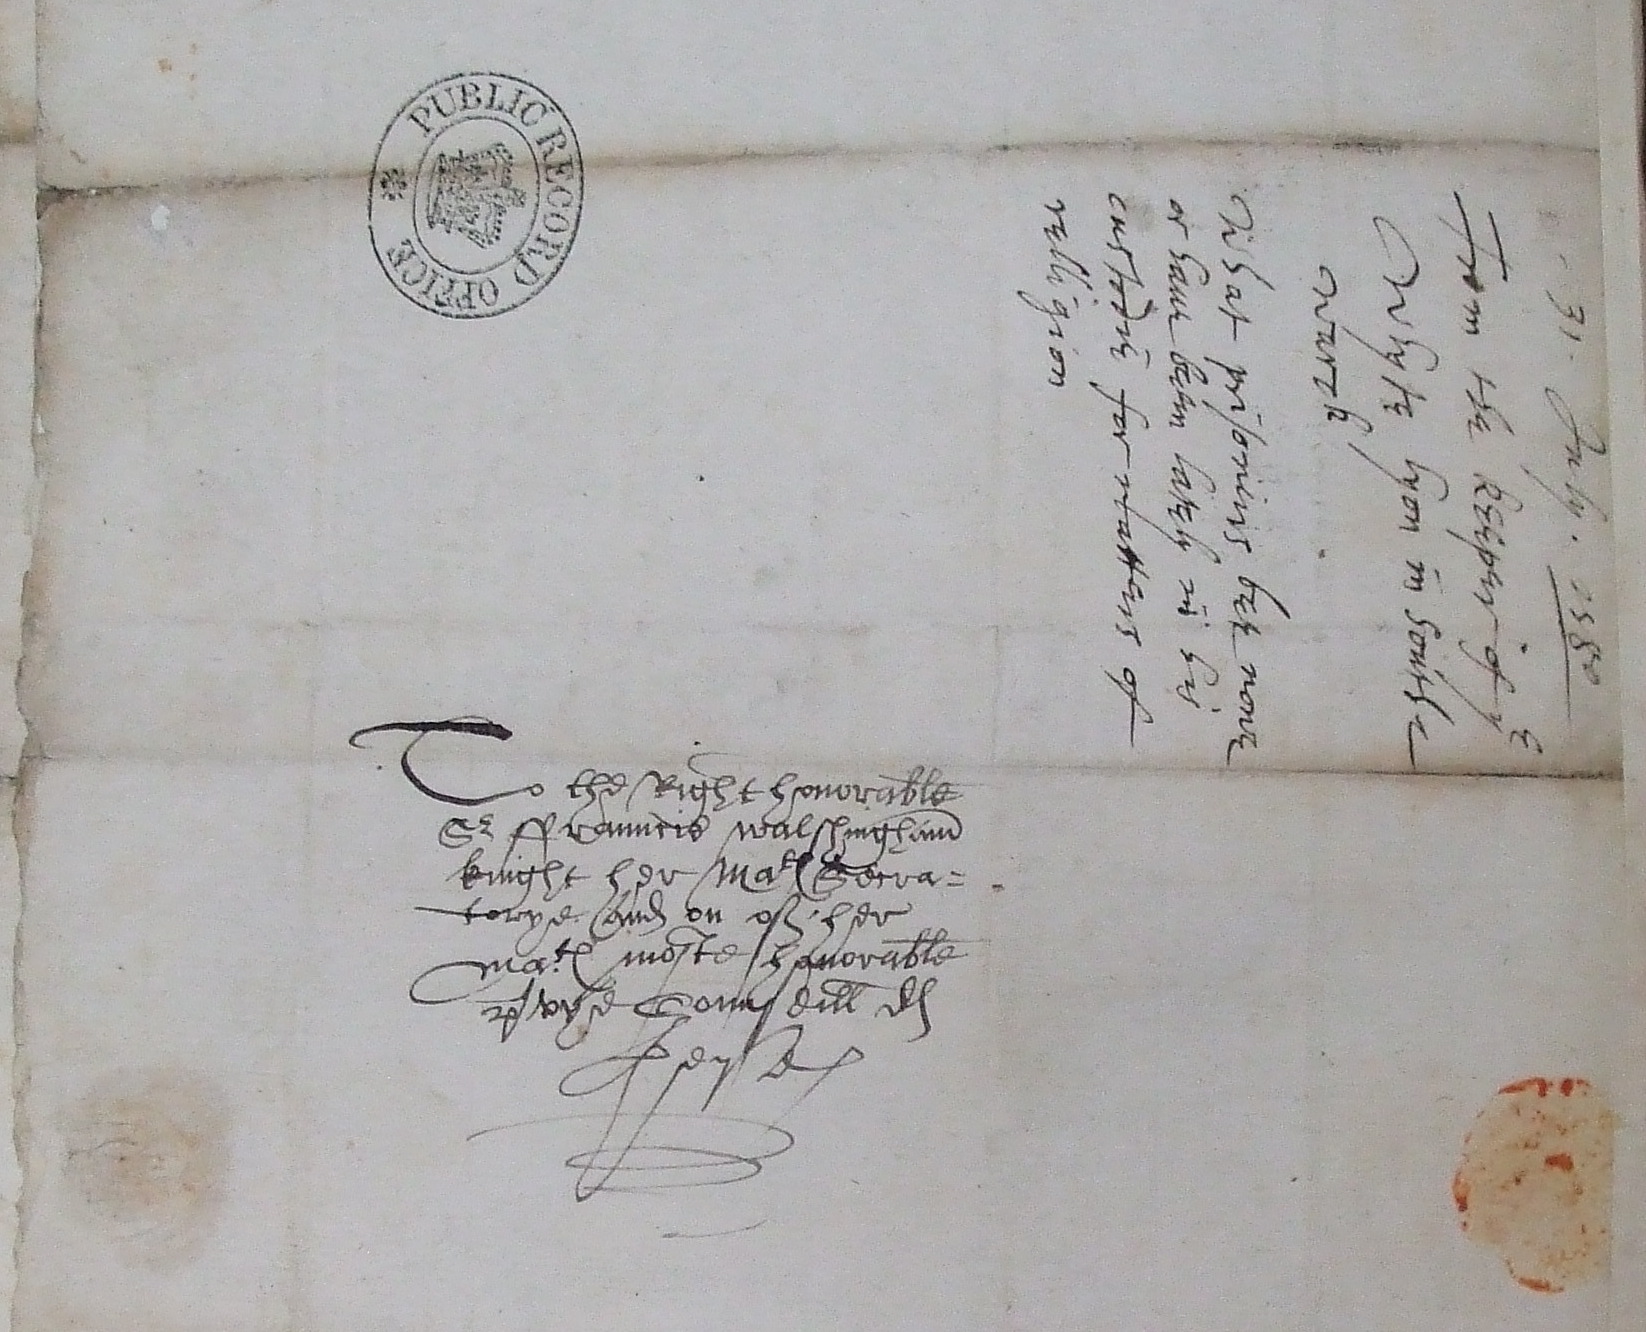 PUBLIC RECORD OFFICE
31 July. 1580
From the keeper of ye
Whyte Lyon in Southe
warke
What prisoners bee now
or haue been lately in his
custodie for matters of
religion
To the Right honorable
Sr ffrauncis walshingham
knight her Matˢ Secra=
torye and on of her
Matˢ moste honorable
pryvye Counsell dd